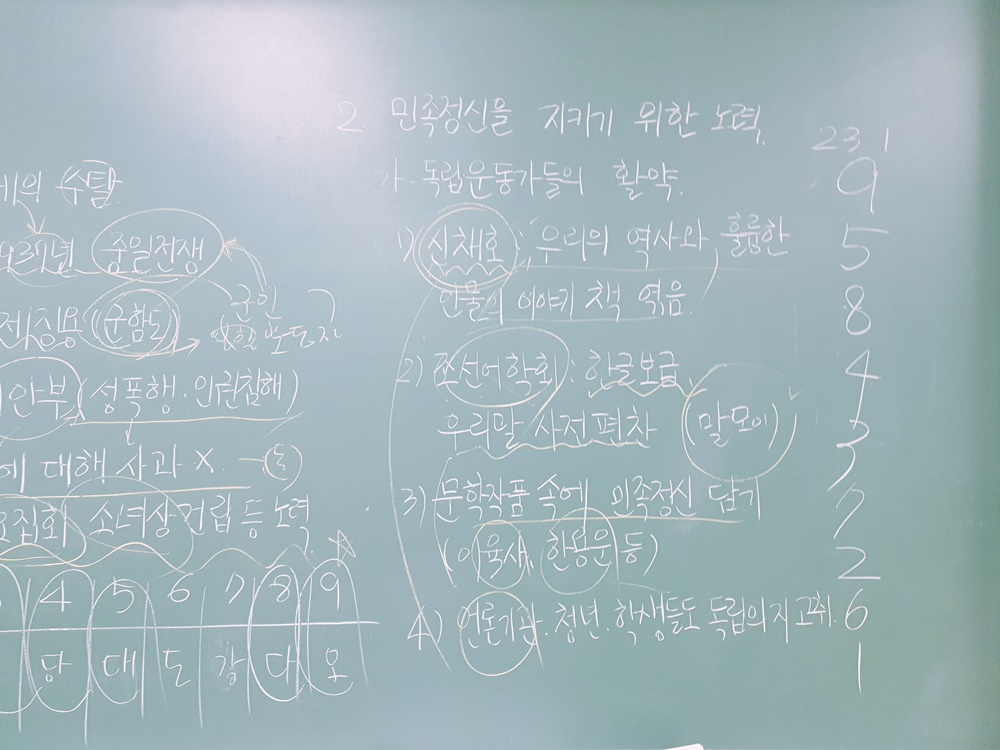 2 민족정신을 지키기 위한 노력.
가. 독립운동가들의 활약.
1) 신채호 : 우리의 역사와 훌륭한
인물의 이야기 책 엮음.
2) 조선어학회 : 한글보급,
우리말 사전편찬 (말모이)
3) 문학작품 속에 민족정신 담기
(이육사, 한용운 등)
4) 언론기관. 청년. 학생들도 독립의지 고취.
23 1
9
5
8
4
3
7
2
6
1
의 수탈
중일전쟁
군인
노동자
징용 (군함도)
안부 (성폭행. 인권침해)
에 대해 사과 X
집회 소녀상 건립 등 노력.
4 5 6 7 8 9
당 대 도 강 다 모